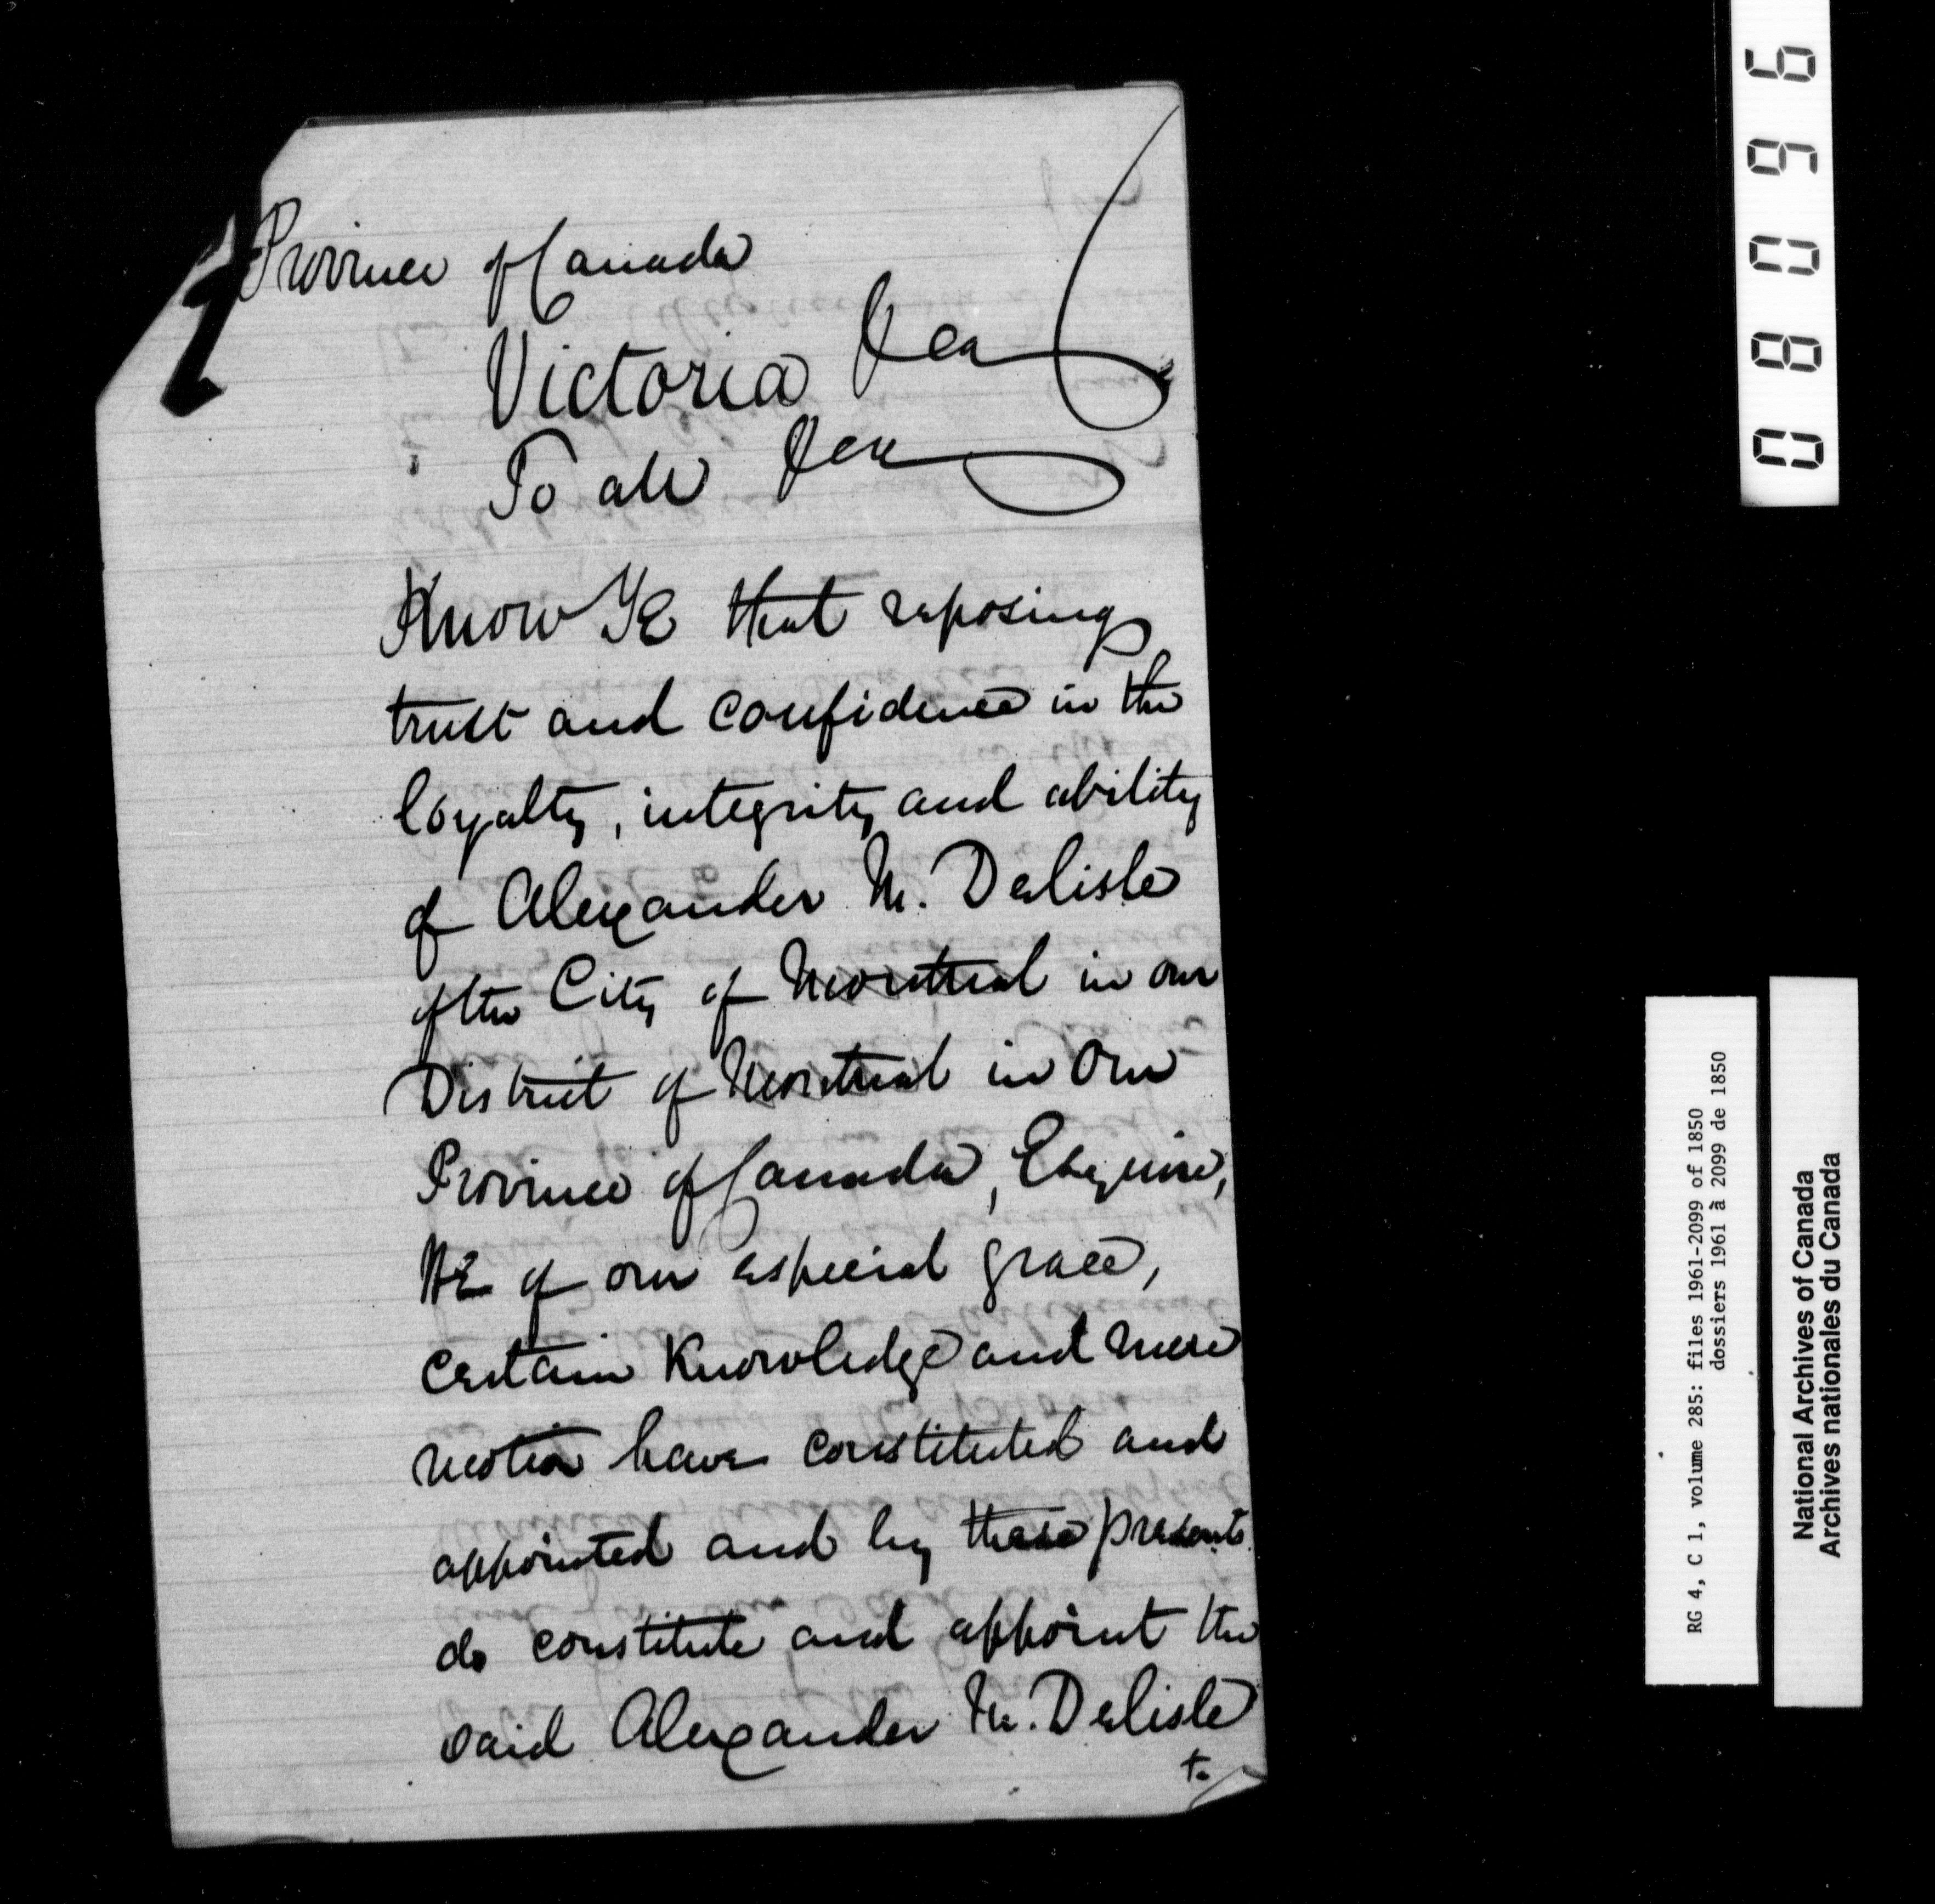 Province of Canada
Victoria &ca
To all &ca
Know Ye that reposing
trust and confidence in the
loyalty, integrity and ability
of Alexander M. Delisle
of the City of Montreal in our
District of Montreal in our
Province of Canada, Esquire,
We of our especial grace,
certain Knowledge and mere
motion have constituted and
appointed and by these presents
do constitute and appoint the
said Alexander M. Delisle
to
08096
RG 4, C 1, volume 285: files 1961-2099 of 1850
dossiers 1961 à 2099 de 1850
National Archives of Canada
Archives nationales du Canada